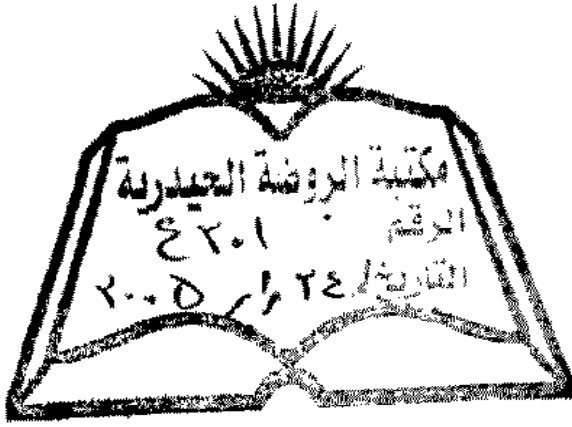 مكتبة الروضة الحيدرية
الرقم ٣٠١ ع
التاريخ / ٢٤ / ١ / ٢٠٠٥